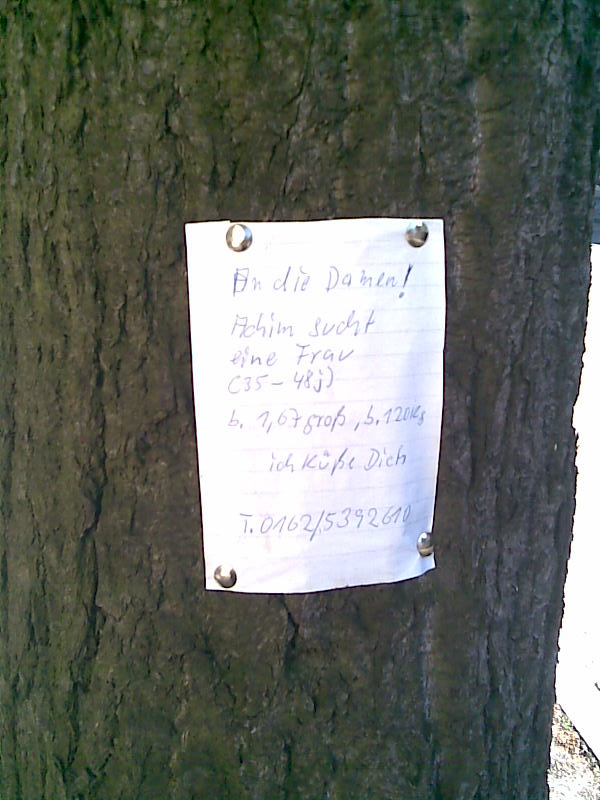 An die Damen!
Achim sucht
eine Frau
(35-48j)
b. 1,67 groß, b. 120 Kg
ich küße Dich
T. 0162/5392610